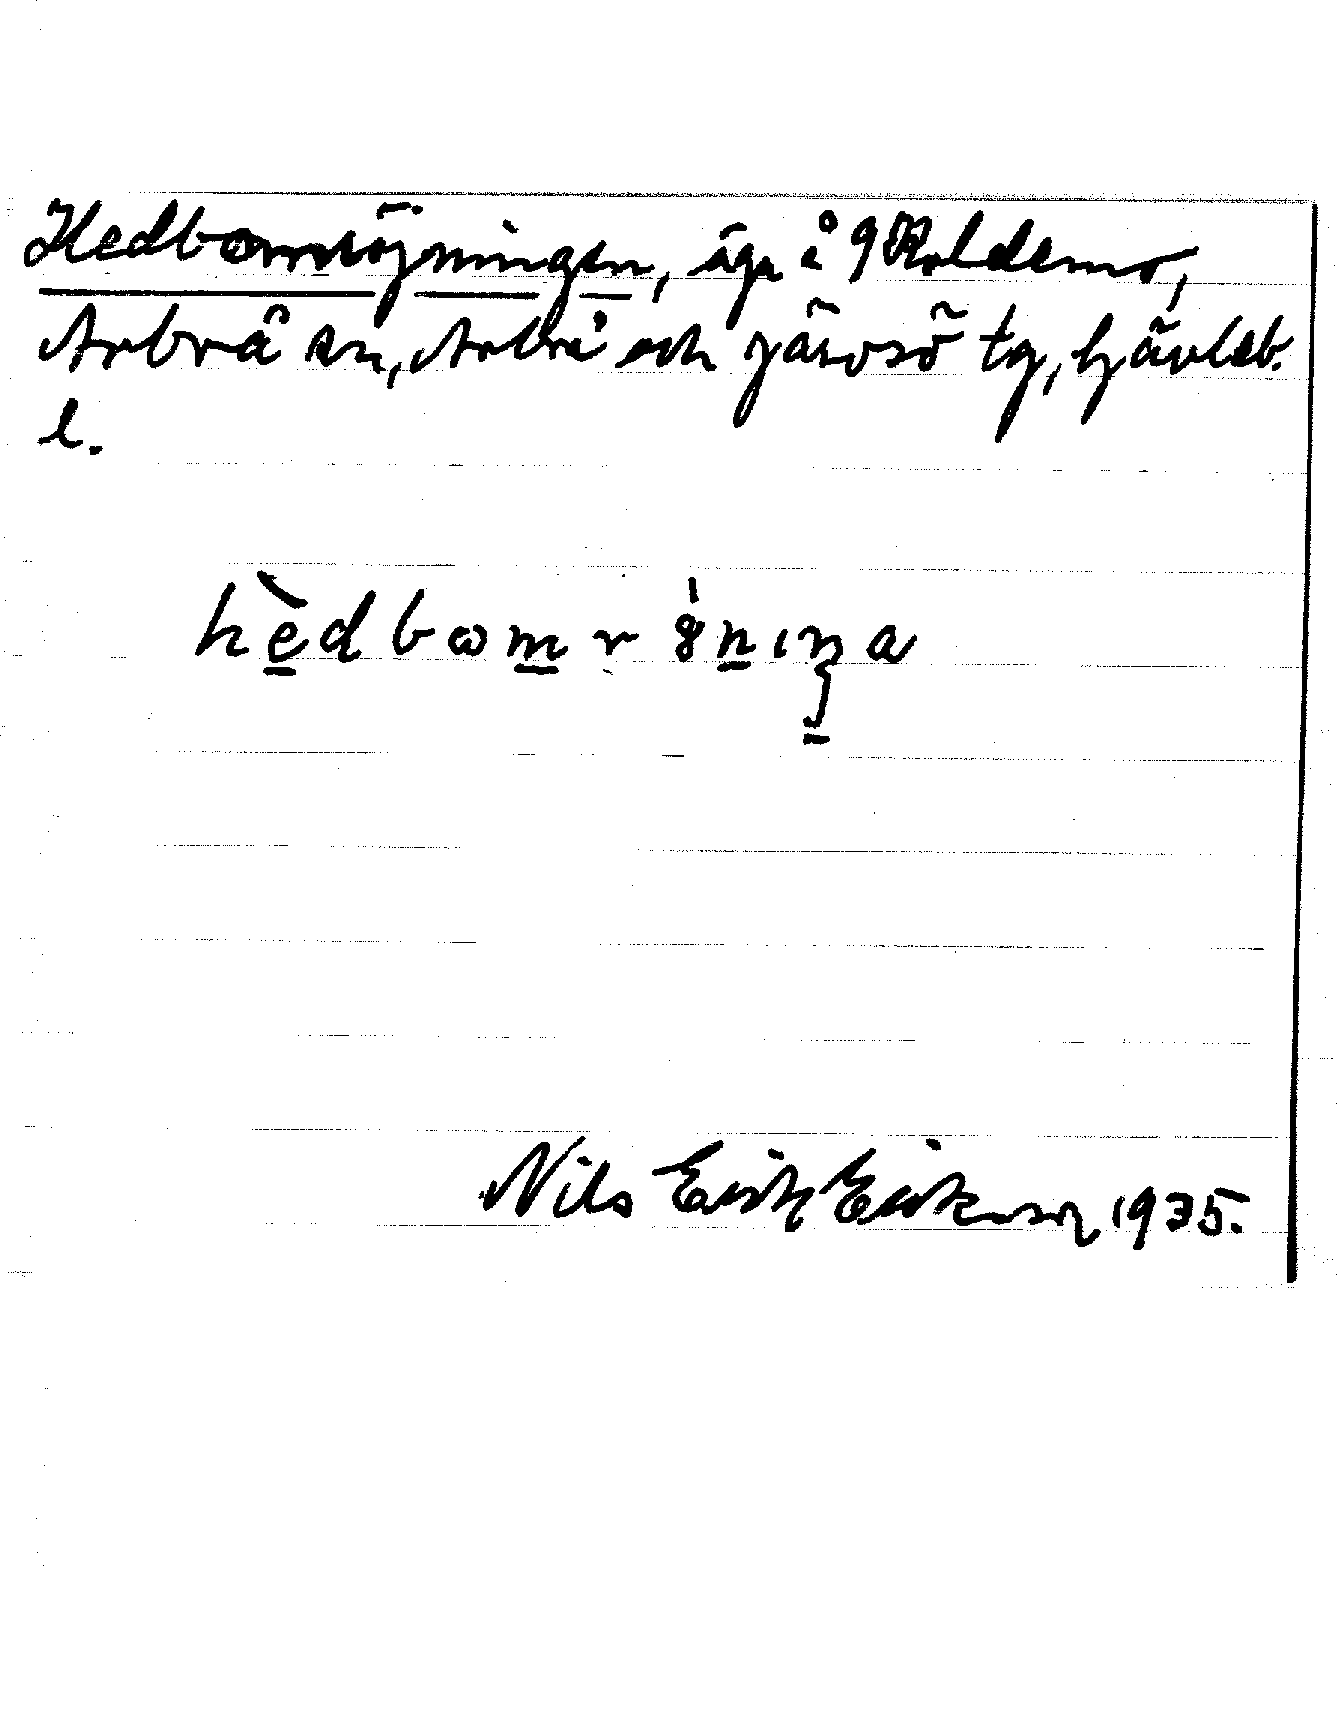 Hedbomröjningen, äga å 9 Koldemo,
Arbrå sn, Arbrå och Järvsö tg, Gävleb.
l.
hèdbωmrȣ̀nıŋa
Nils Erik Eriksson 1935.